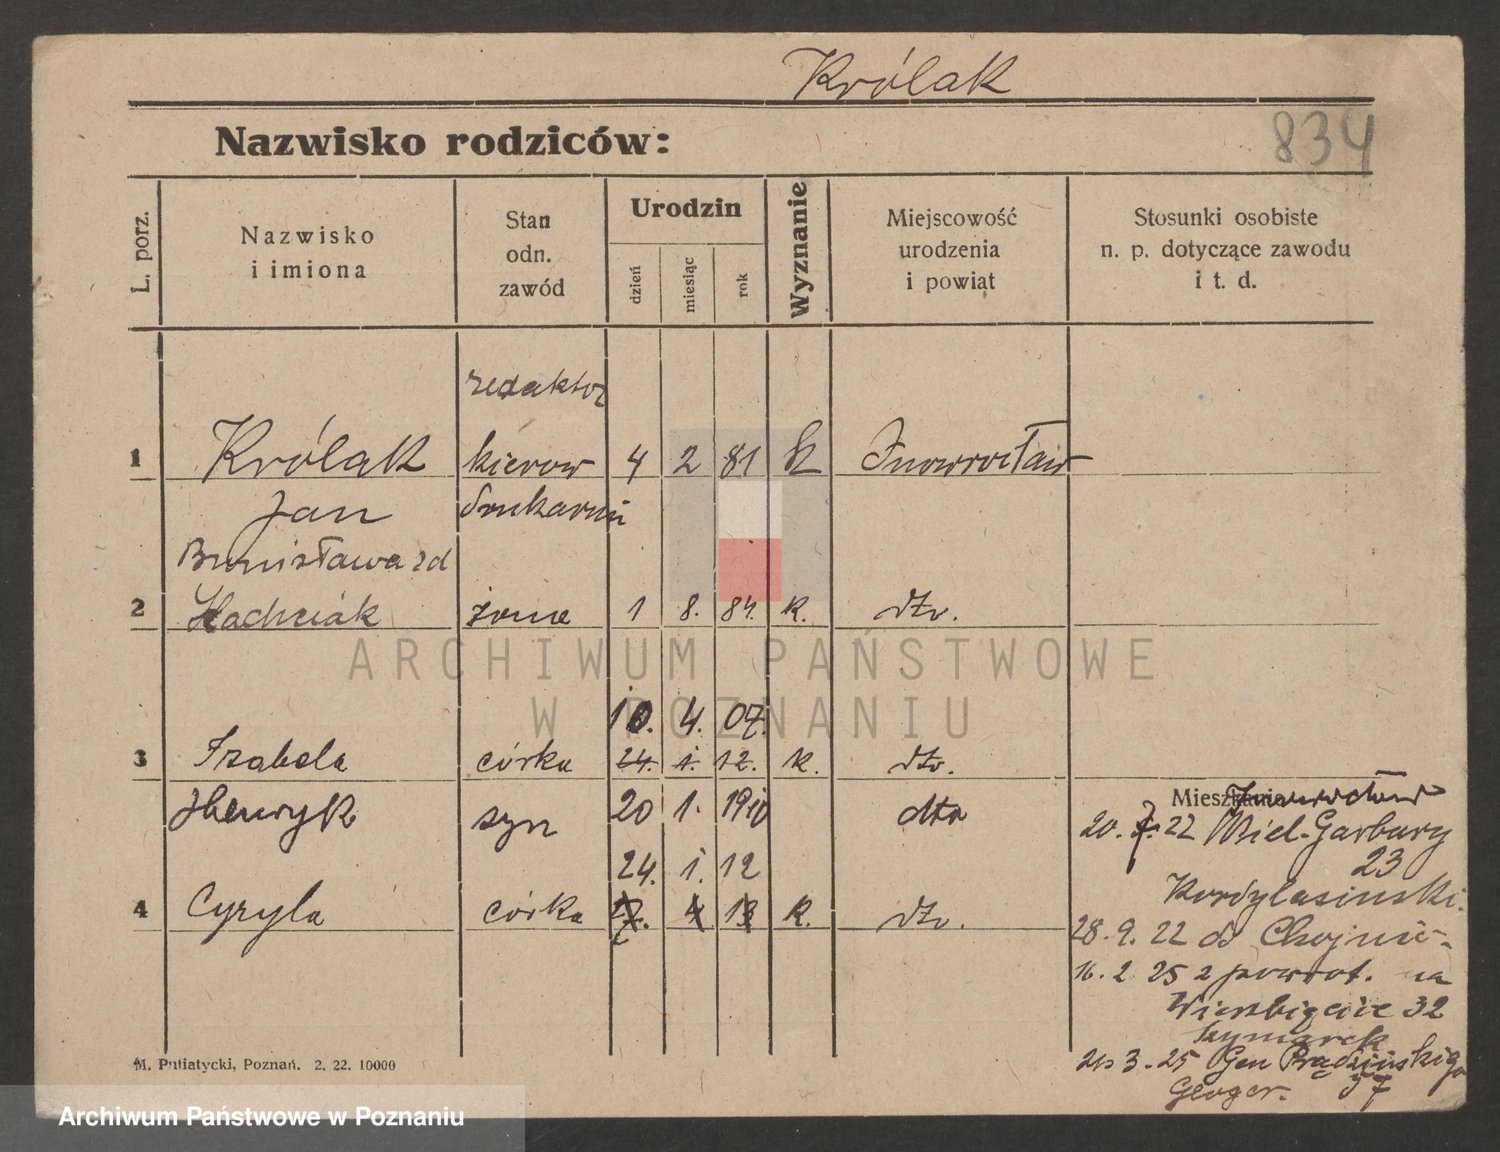 Królak
Nazwisko rodziców:
834
L. porz.
Nazwisko
i imiona
Stan
odn.
zawód
Urodzin
dzień
miesiąc
rok
Wyznanie
Miejscowość
urodzenia
i powiat
Stosunki osobiste
n. p. dotyczące zawodu
i t. d.
redaktor
1 Królak kierow 4 2 81 k Inowrocław
Jan drukarni
Bronisława zd
2 żona 1 8. 84. k. dto.
10. 4. 07.
3 Izabela córka 24. 1. 12. k. dto.
Henryk syn 20 1. 1910 dto
24. 1. 12
4 Cyryla córka k. dto.
Mieszkanie Inowrocław
20. 7. 22 Wiel-Garbary
23
28. 9. 22 do Chojnic
16. 2 25 z powrot. na
Wierzbięcice 32
Szymarek
3-25 Gen Prądzińskiego
Gloger. 57
M. Putiatycki, Poznań. 2. 22. 10000
ARCHIWUM PAŃSTWOWE
W POZNANIU
Archiwum Państwowe w Poznaniu